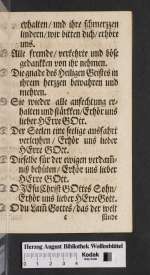 erhalten / und ihre schmertzen
lindern / wir bitten dich / erhöre
uns.
Alle frembde / verkehrte und böse
gedancken von ihr nehmen.
Die gnade des Heiligen Geistes in
ihrem hertzen bewahren und
mehren.
Sie wieder alle anfechtung er-
halten und stärcken / Erhör uns
lieber HErre GOtt.
Der Seelen eine selige ausfahrt
verleyhen / Erhör uns lieber
HErre GOtt.
Dieselbe für der ewigen verdam̃-
niß behüten / Erhör uns lieber
HErre GOtt.
O JEsu Christ GOttes Sohn /
Erhör uns lieber HErre Gott.
O du Lam̃ Gottes / das der welt
sünde
Herzog August Bibliothek Wolfenbüttel
Kodak